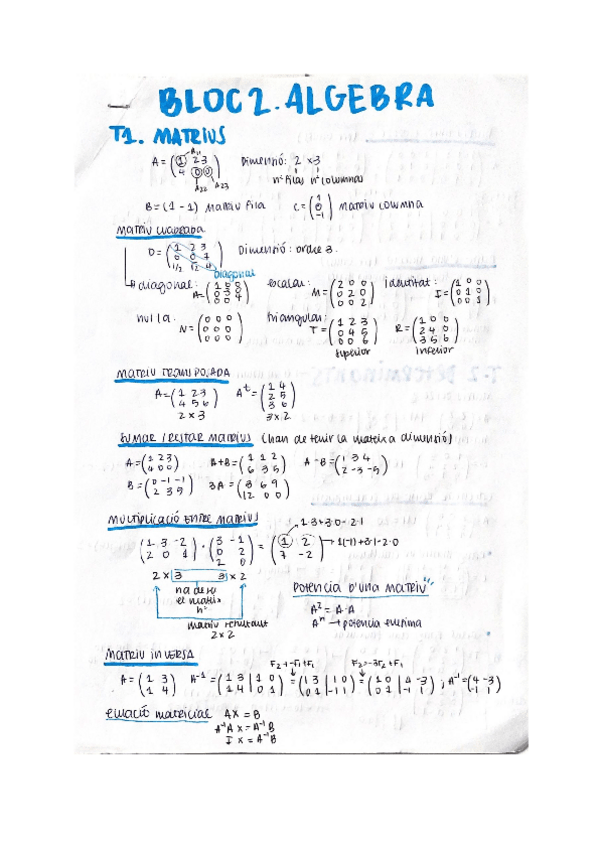 BLOC 2. ALGEBRA
T1. MATRIUS
A = (1 2 3 / 4 0 0) A11 A22 A23 Dimensió: 2 x 3
nº filas nº columnas
B = (1 -1) matriu fila C = (1 / 0 / -1) matriu columna
MATRIU CUADRADA
D = (1 2 3 / 0 0 7 / 1/2 12 4) Dimensió: ordre 3.
Diagonal
diagonal: A = (1 0 0 / 0 3 0 / 0 0 4) escalar: M = (2 0 0 / 0 2 0 / 0 0 2) identitat: I = (1 0 0 / 0 1 0 / 0 0 1)
nul·la: N = (0 0 0 / 0 0 0 / 0 0 0) triangular: T = (1 2 3 / 0 4 5 / 0 0 6) R = (1 0 0 / 2 4 0 / 3 5 6)
superior inferior
MATRIU TRANSPOSADA
A = (1 2 3 / 4 5 6) Aᵗ = (1 4 / 2 5 / 3 6)
2 x 3 3 x 2
SUMAR / RESTAR MATRIUS (han de tenir la mateixa dimensió)
A = (1 2 3 / 4 0 0) A+B = (1 1 2 / 6 3 5) A-B = (1 3 4 / 2 -3 -5)
B = (0 -1 -1 / 2 3 5) 3A = (3 6 9 / 12 0 0)
MULTIPLICACIÓ ENTRE MATRIUS
1·3+3·0-2·1
(1 3 -2 / 2 0 1) · (3 -1 / 0 2 / 2 0) = (1 2 / 7 -2) → 1(-1)+3·1-2·0
2 x 3 3 x 2
ha de ser el mateix nº
matriu resultant
2 x 2
POTENCIA D'UNA MATRIU
A² = A·A
Aⁿ → potencia enesima
MATRIU INVERSA
F2→-F1+F1 F2=-3F2+F1
A = (1 3 / 1 4) A⁻¹ = (1 3 | 1 0 / 1 4 | 0 1) = (1 3 | 1 0 / 0 1 | -1 1) = (1 0 | 4 -3 / 0 1 | -1 1); A⁻¹ = (4 -3 / -1 1)
EQUACIÓ matricial AX = B
A⁻¹A X = A⁻¹B
I X = A⁻¹B